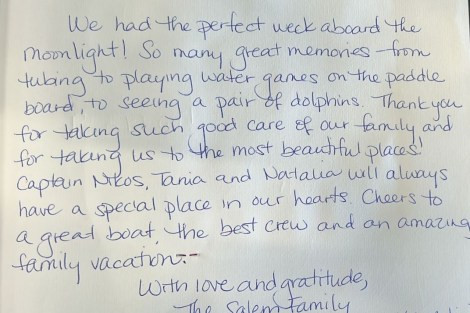 We had the perfect week aboard the
Moonlight! So many great memories from
tubing to playing water games on the paddle
board, to seeing a pair of dolphins. Thank you
for taking such good care of our family and
for taking us to the most beautiful places!
Captain Nikos, Tania and Natalia will always
have a special place in our hearts. Cheers to
a great boat, the best crew and an amazing
family vacation.
With love and gratitude,
The Salem Family